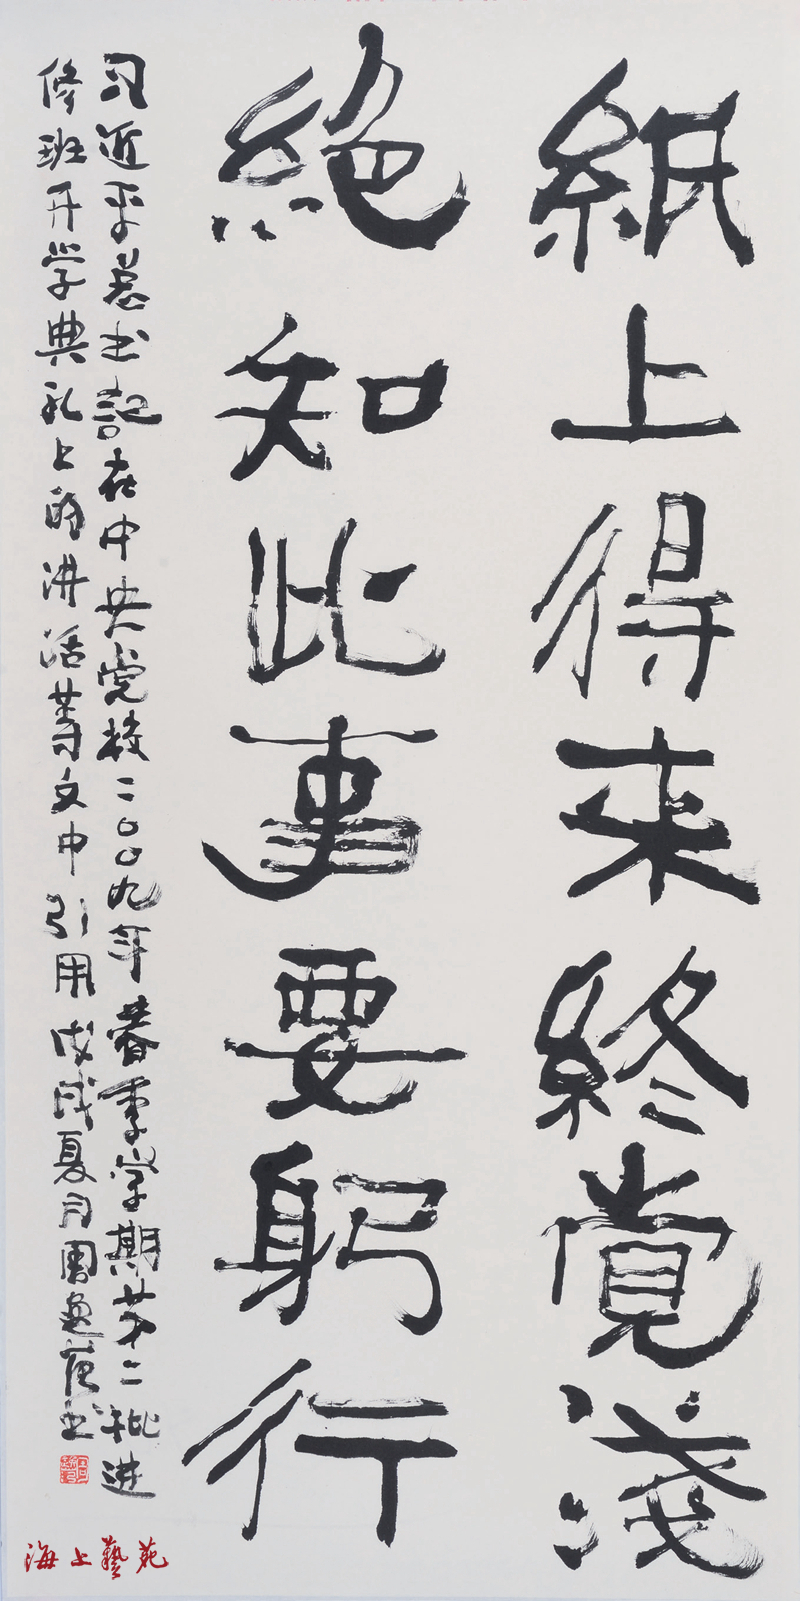 紙上得来終覚淺
絶知此事要躬行
习近平总书記在中央党校二〇〇九年春季学期第二批进
修班开学典礼上的讲话等文中引用戊戌夏月周逸范书
海上藝苑